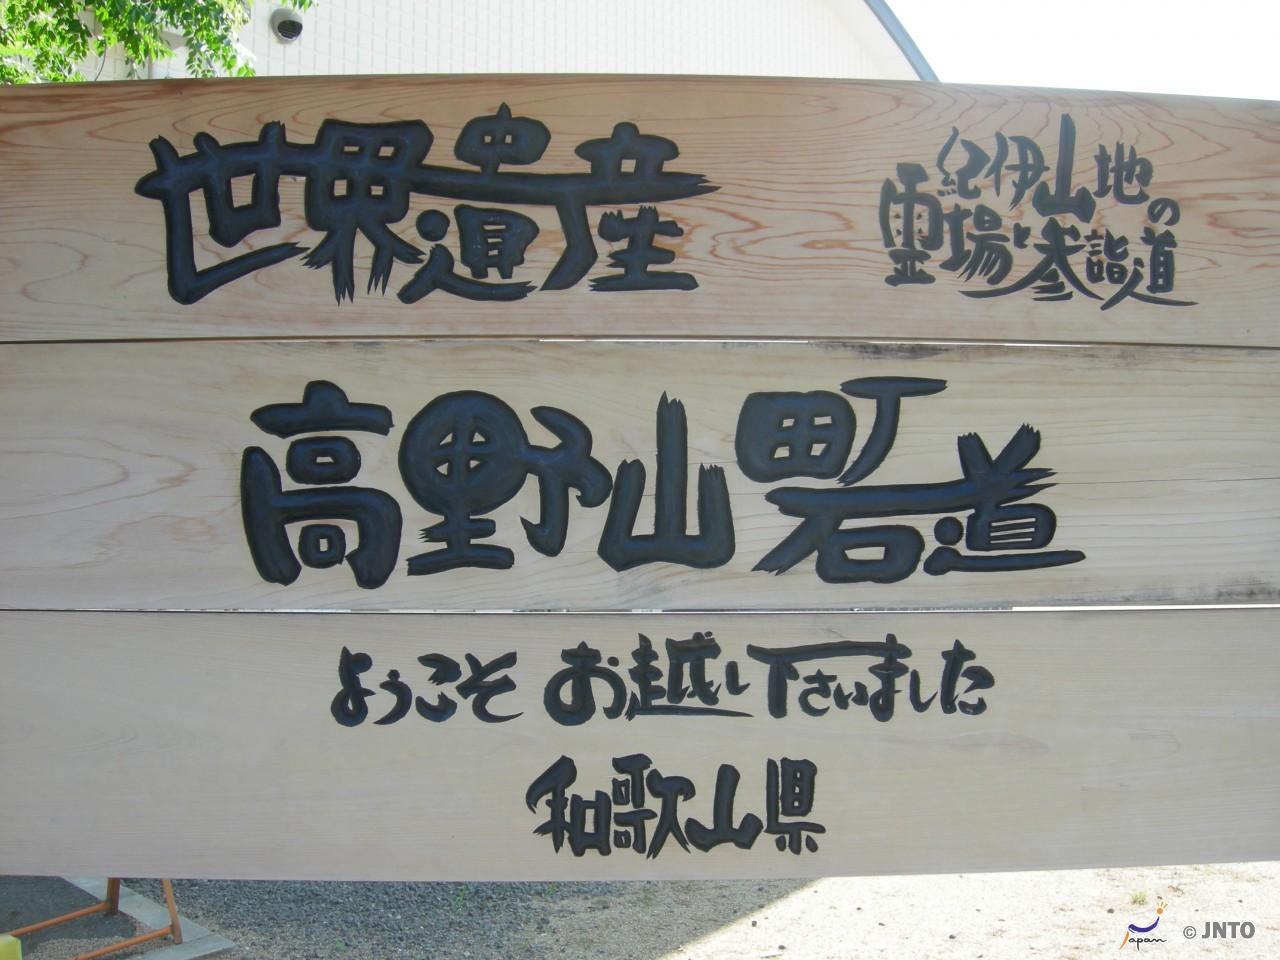 世界遺産
紀伊山地の
霊場と参詣道
高野山町石道
ようこそ お越し下さいました
和歌山県
Japan © JNTO